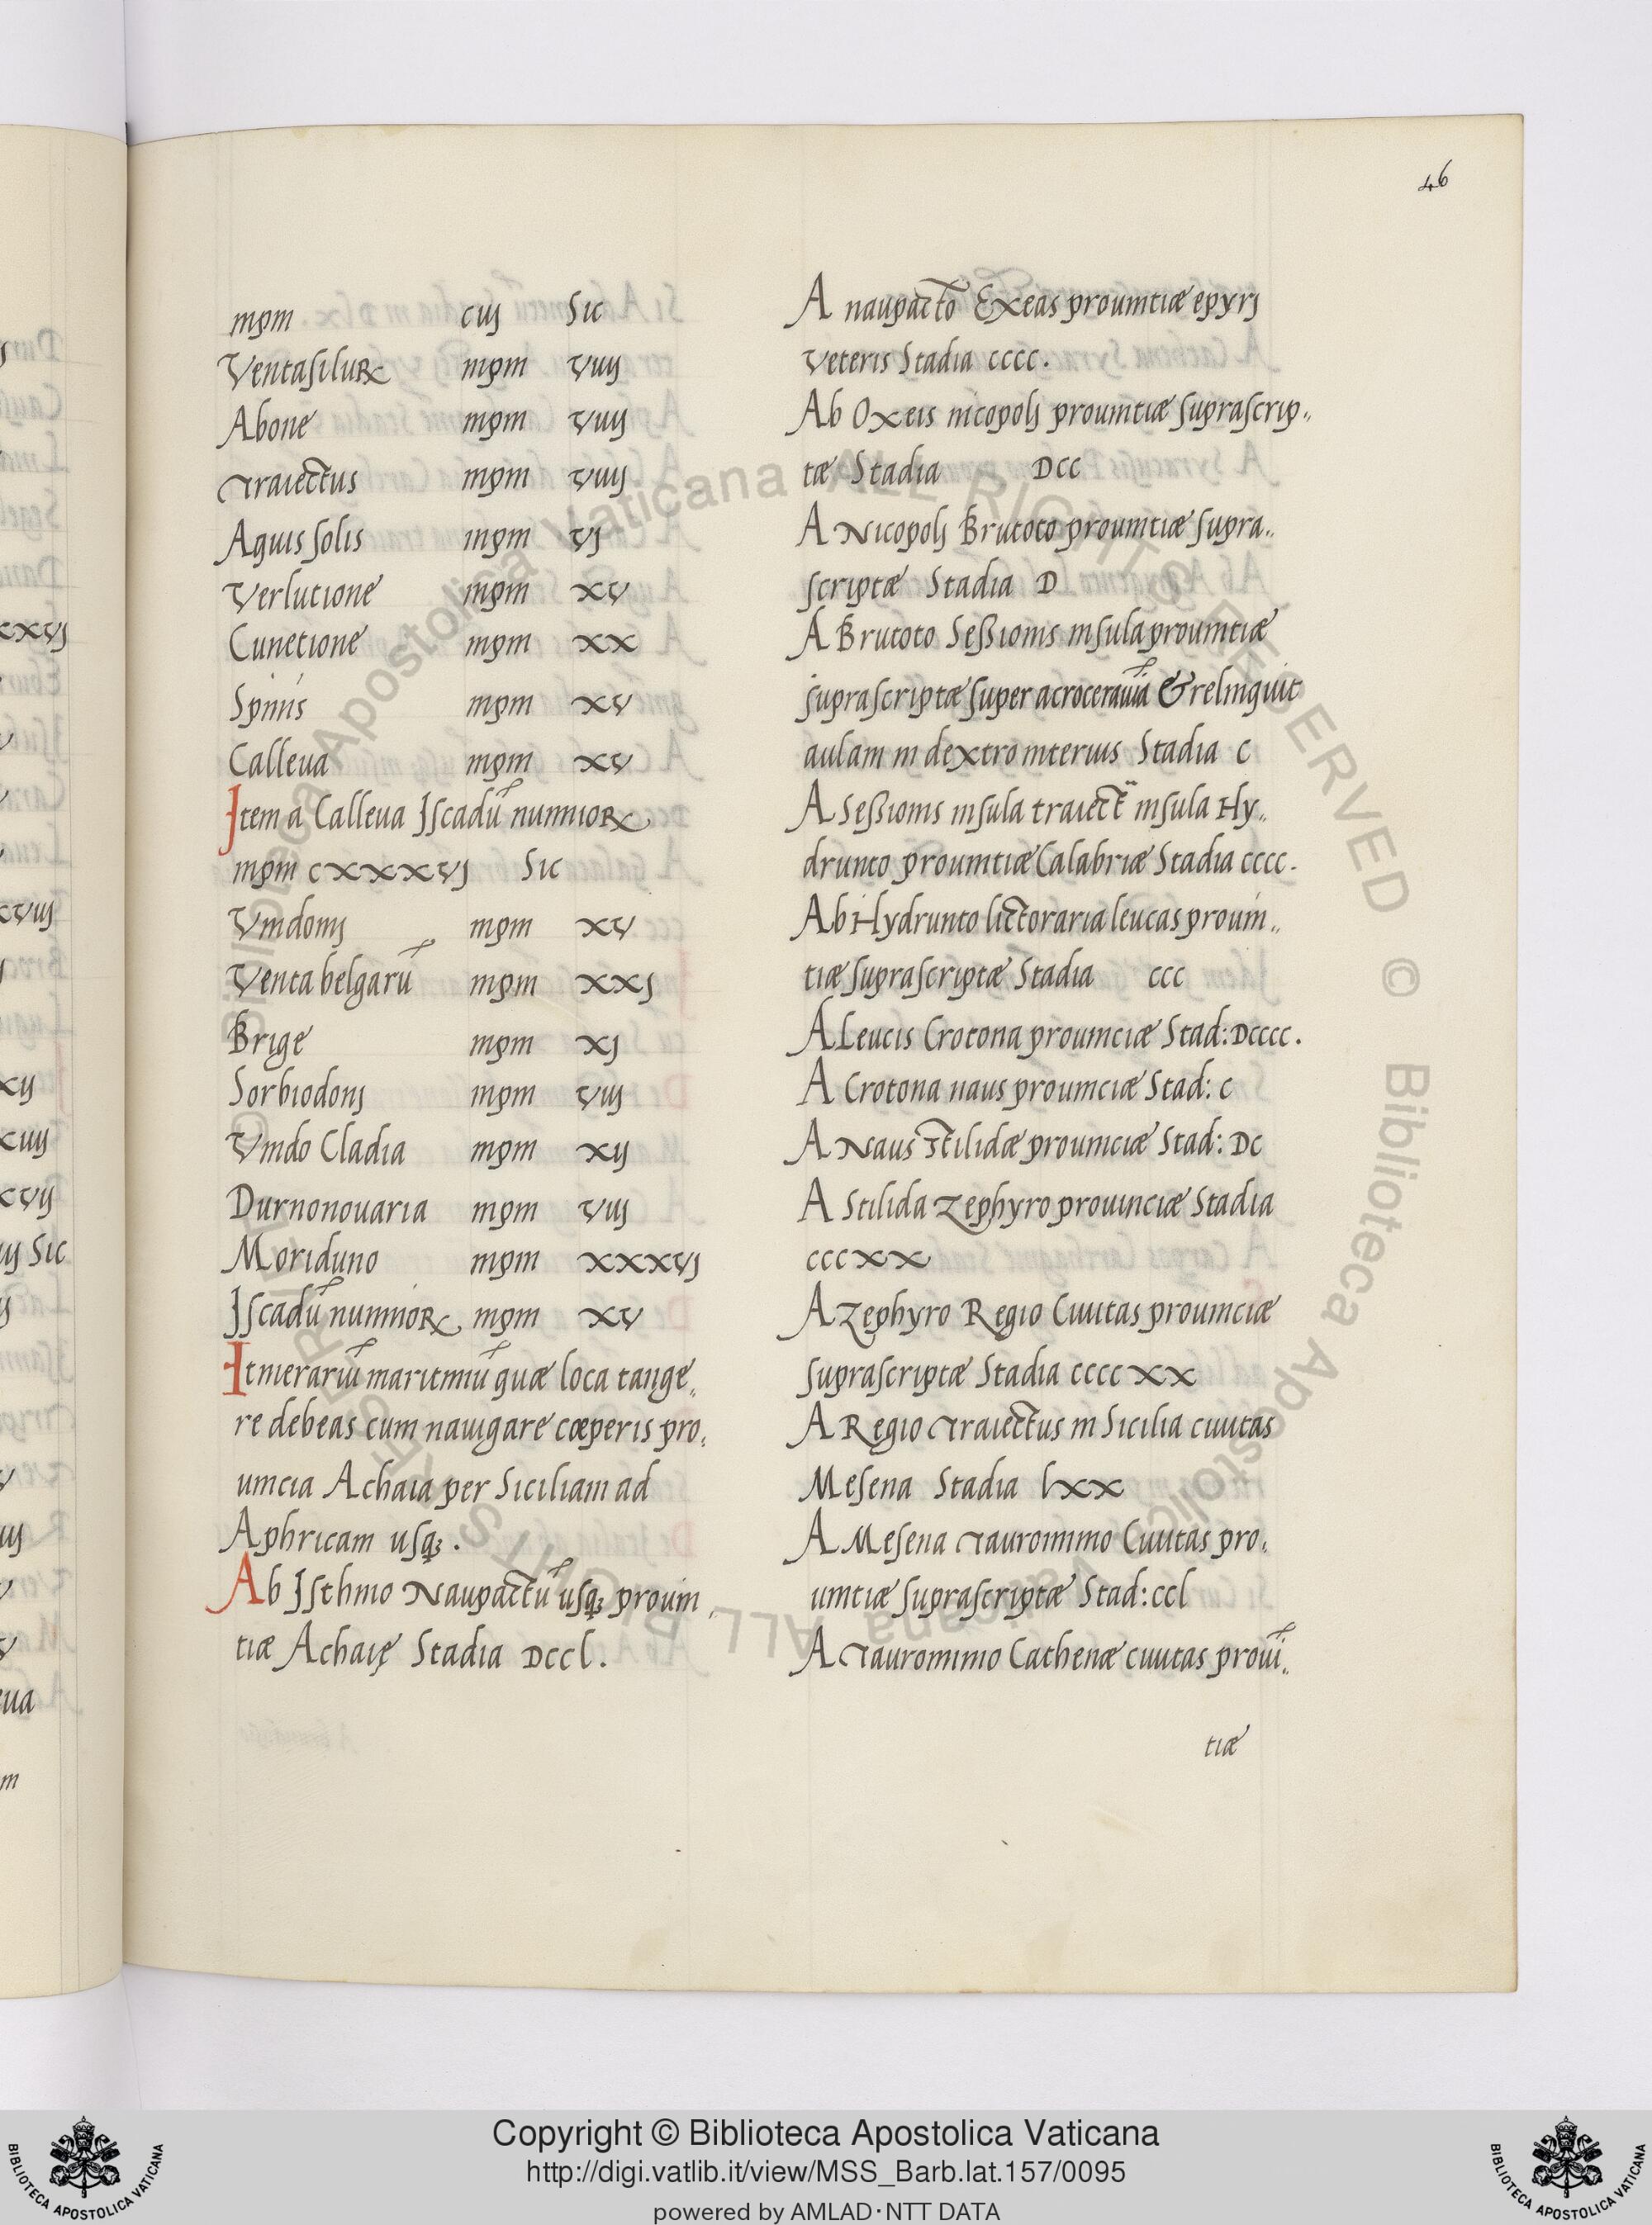 46
mpm ciij Sic
Ventasiluꝝ mpm viiij
Abone mpm viiij
Traiectus mpm viiij
Aquis solis mpm vj
Verlutione mpm xv
Cunetione mpm xx
Spinis mpm xv
Calleua mpm xv
Item a Calleua Iscadū nunnioꝝ
mpm cxxxvj Sic
Vindonj mpm xv
Venta belgarū mpm xxj
Brige mpm xj
Sorbiodonj mpm viij
Vindo Cladia mpm xij
Durnonouaria mpm viij
Moriduno mpm xxxvj
Iscadū nunnioꝝ mpm xv
Itinerariū maritimū quæ loca tange„
re debeas cum nauigare cœperis pro„
uincia Achaia per Siciliam ad
Aphricam usqꝫ.
Ab Isthmo Naupactū usqꝫ prouin„
tiæ Achaię Stadia DCCl.
A naupacto Exeas prouintiæ epyrj
veteris Stadia cccc.
Ab Oxeis nicopolj prouintiæ suprascrip„
tæ Stadia DCC
A Nicopolj Brutoto prouintiæ supra„
scriptæ Stadia D
A Brutoto Seßionis insula prouintiæ
suprascriptæ super acrocerauīa & relinquit
aulam in dextro interius Stadia C
A Seßionis insula traiect̄ insula Hy„
drunto prouintiæ Calabriæ Stadia cccc.
Ab Hydrunto lictoraria leucas prouin„
tiæ suprascriptæ Stadia ccc
A Leucis Crotona prouinciæ Stad: Dcccc.
A Crotona naus prouinciæ Stad: C
A Naus Stilidæ prouinciæ Stad: DC
A Stilida Zephyro prouinciæ Stadia
cccxx
A Zephyro Regio Ciuitas prouinciæ
suprascriptæ Stadia ccccxx
A Regio Traiectus in Sicilia ciuitas
Mesena Stadia lxx
A Mesena Tauromino Ciuitas pro„
uintiæ suprascriptæ Stad: ccl
A Tauromino Cathenæ ciuitas prouī„
tiæ
Copyright © Biblioteca Apostolica Vaticana
http://digi.vatlib.it/view/MSS_Barb.lat.157/0095
powered by AMLAD·NTT DATA